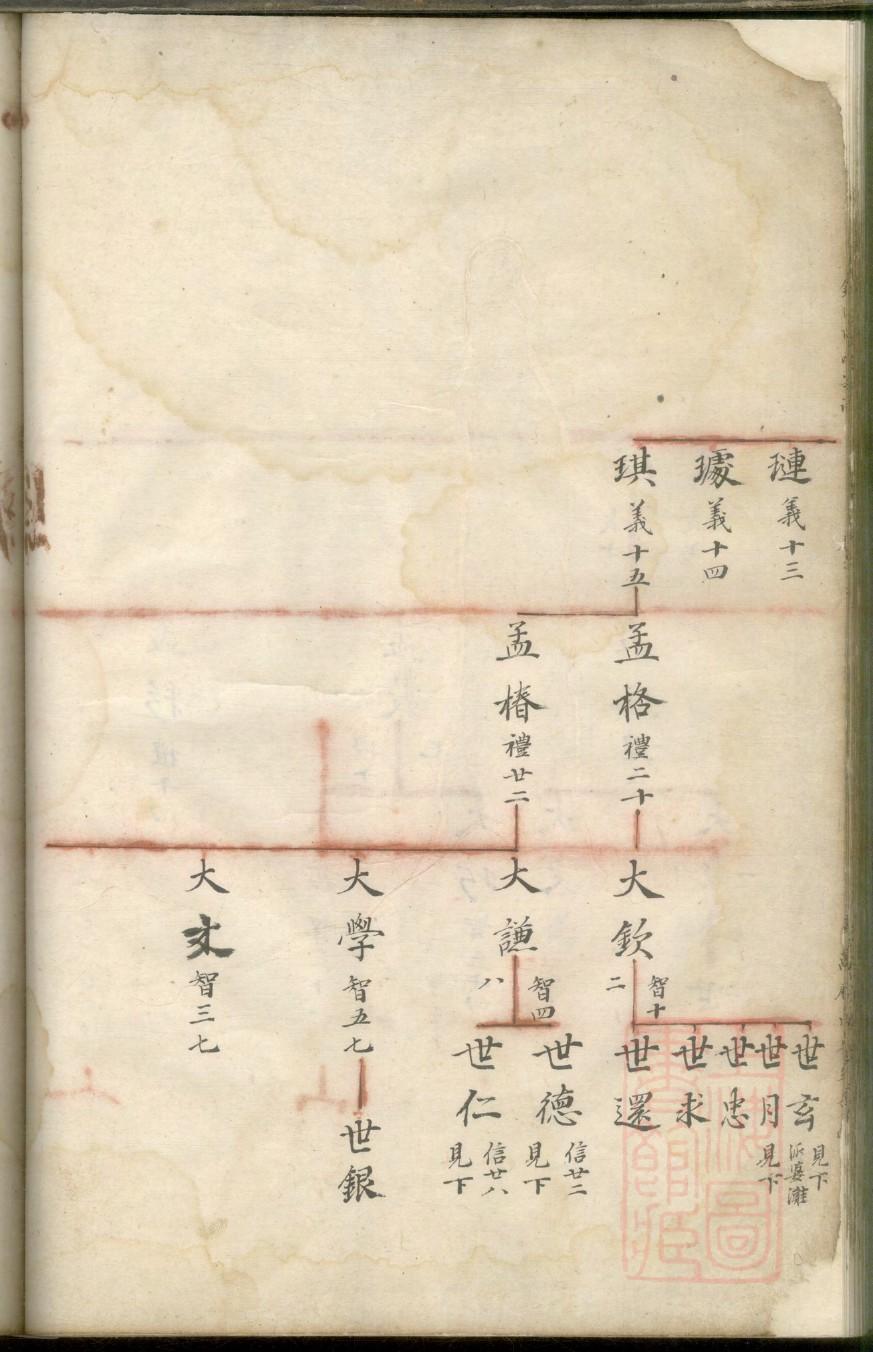 璉 義十三
璩 義十四
琪 義十五
孟格 禮二十
孟椿 禮廿二
大欽 智十二
大謙 智四八
大學 智五七
大文 智三七
世玄 見下 派婆灘
世月 見下
世忠
世求
世還
世德 信廿二 見下
世仁 信廿八 見下
世銀